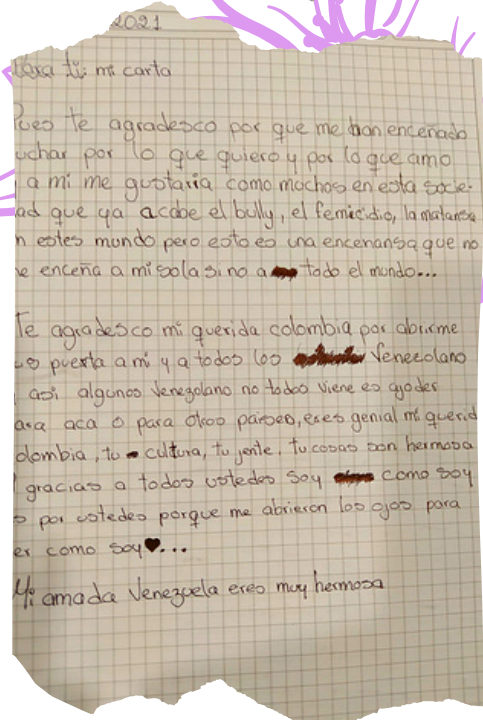 2021
para ti: mi carta
Pues te agradesco por que me han enceñado
uchar por lo que quiero y por lo que amo
a mi me gustaria como muchos en esta socie-
ad que ya acabe el bully, el femicidio, la matansa
n estes mundo pero esto es una encenansa que no
e enceña a mi sola si no a todo el mundo...
Te agradesco mi querida colombia por abrirme
us puerta a mi y a todos los Venezolano
asi algunos Venezolano no todos viene es ajoder
ara aca o para otros paises, eres genial mi querid
olombia, tu cultura, tu jente, tu cosas son hermosa
gracias a todos ustedes soy como soy
s por ustedes porque me abrieron los ojos para
er como soy♥...
Mi amada Venezuela eres muy hermosa